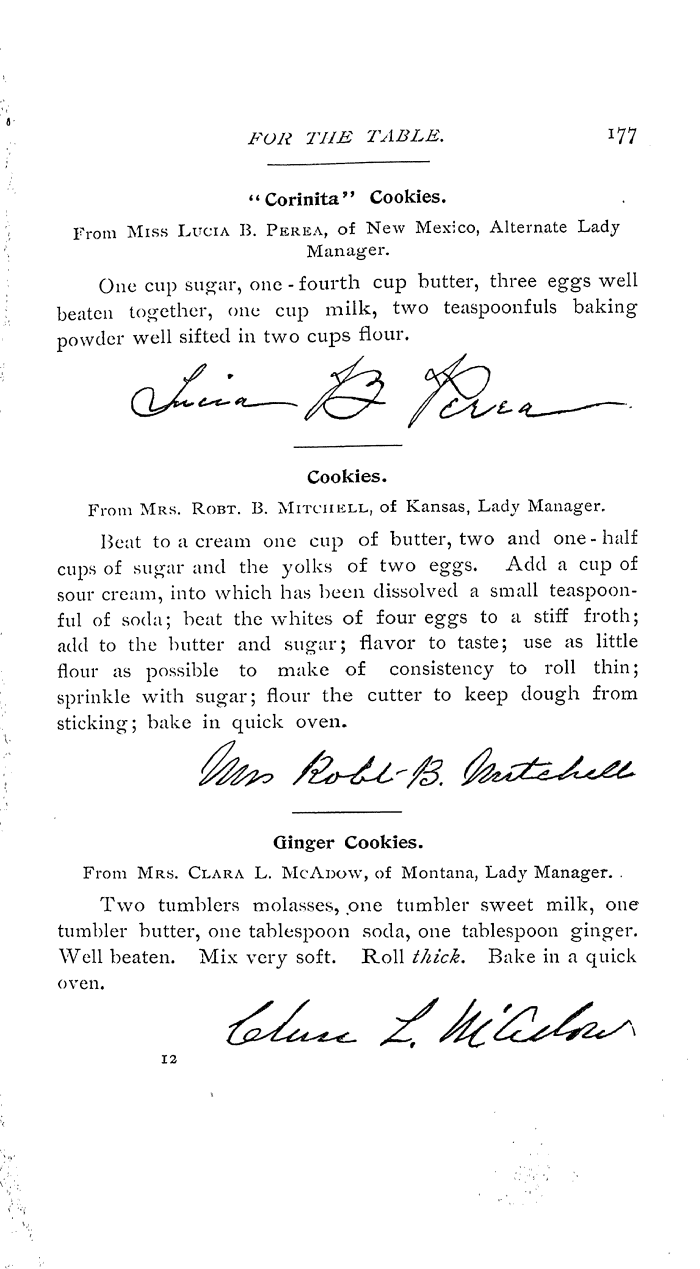 FOR THE TABLE. 177
“Corinita” Cookies.
From Miss Lucia B. Perea, of New Mexico, Alternate Lady
Manager.
One cup sugar, one-fourth cup butter, three eggs well
beaten together, one cup milk, two teaspoonfuls baking
powder well sifted in two cups flour.
Lucia B Perea
Cookies.
From Mrs. Robt. B. Mitchell, of Kansas, Lady Manager.
Beat to a cream one cup of butter, two and one-half
cups of sugar and the yolks of two eggs. Add a cup of
sour cream, into which has been dissolved a small teaspoon-
ful of soda; beat the whites of four eggs to a stiff froth;
add to the butter and sugar; flavor to taste; use as little
flour as possible to make of consistency to roll thin;
sprinkle with sugar; flour the cutter to keep dough from
sticking; bake in quick oven.
Mrs Robt B. Mitchell
Ginger Cookies.
From Mrs. Clara L. McAdow, of Montana, Lady Manager.
Two tumblers molasses, one tumbler sweet milk, one
tumbler butter, one tablespoon soda, one tablespoon ginger.
Well beaten. Mix very soft. Roll thick. Bake in a quick
oven.
Clara L. McAdow
12